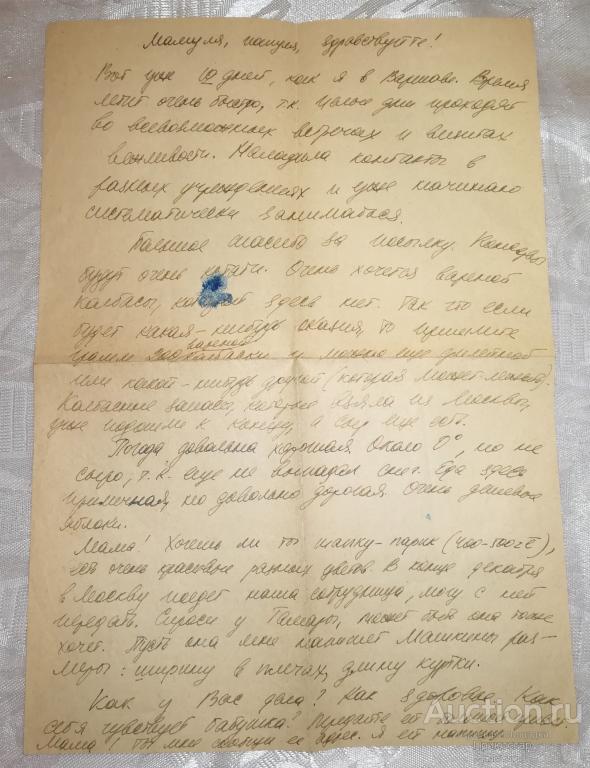 Мамуля, папуля, здравствуйте!
Вот уже 10 дней, как я в Варшаве. Время
летит очень быстро, т.к. целые дни проходят
во всевозможных встречах и визитах
вежливости. Наладила контакты в
разных учреждениях и уже начинаю
систематически заниматься.
Большое спасибо за посылку.
будут очень кстати. Очень хочется вареной
колбасы, которой здесь нет. Так что если
будет какая-нибудь оказия, то пришлите
грамм 200 колбаски вареной и можно еще
или какой-нибудь другой (которая может лежать).
Колбасные запасы, которые взяла из Москвы,
уже подошли к концу, а сыр еще есть.
Погода довольно хорошая. Около 0°, но не
сыро, т.к. еще не выпадал снег. Еда здесь
приличная, но довольно дорогая. Очень дешевые
яблоки.
Мама! Хочешь ли ты шапку-парик (400-500 zł),
есть очень красивые разных цветов. В конце декабря
в Москву поедет наша сотрудница, могу с ней
передать. Спроси у Тамары, может быть она тоже
хочет. Пусть она мне напишет Машкины раз-
меры: ширину в плечах, длину куртки.
Как у Вас дела? Как здоровье? Как
себя чувствует бабушка? Передайте ей
Мама! Ты мне ее адрес. Я ей напишу.
Auction.ru